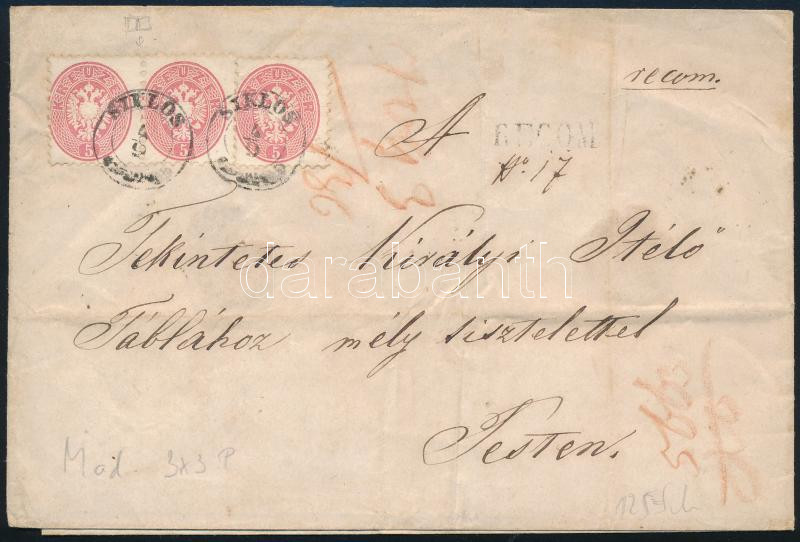 KREUZER KREUZER KREUZER
5 5 5
SIKLOS SIKLOS
recom.
A
RECOM
No. 17
Tekintetes Királyi Itélő
darabanth
Táblához mély tisztelettel
Pesten.
Mod 3x3 P